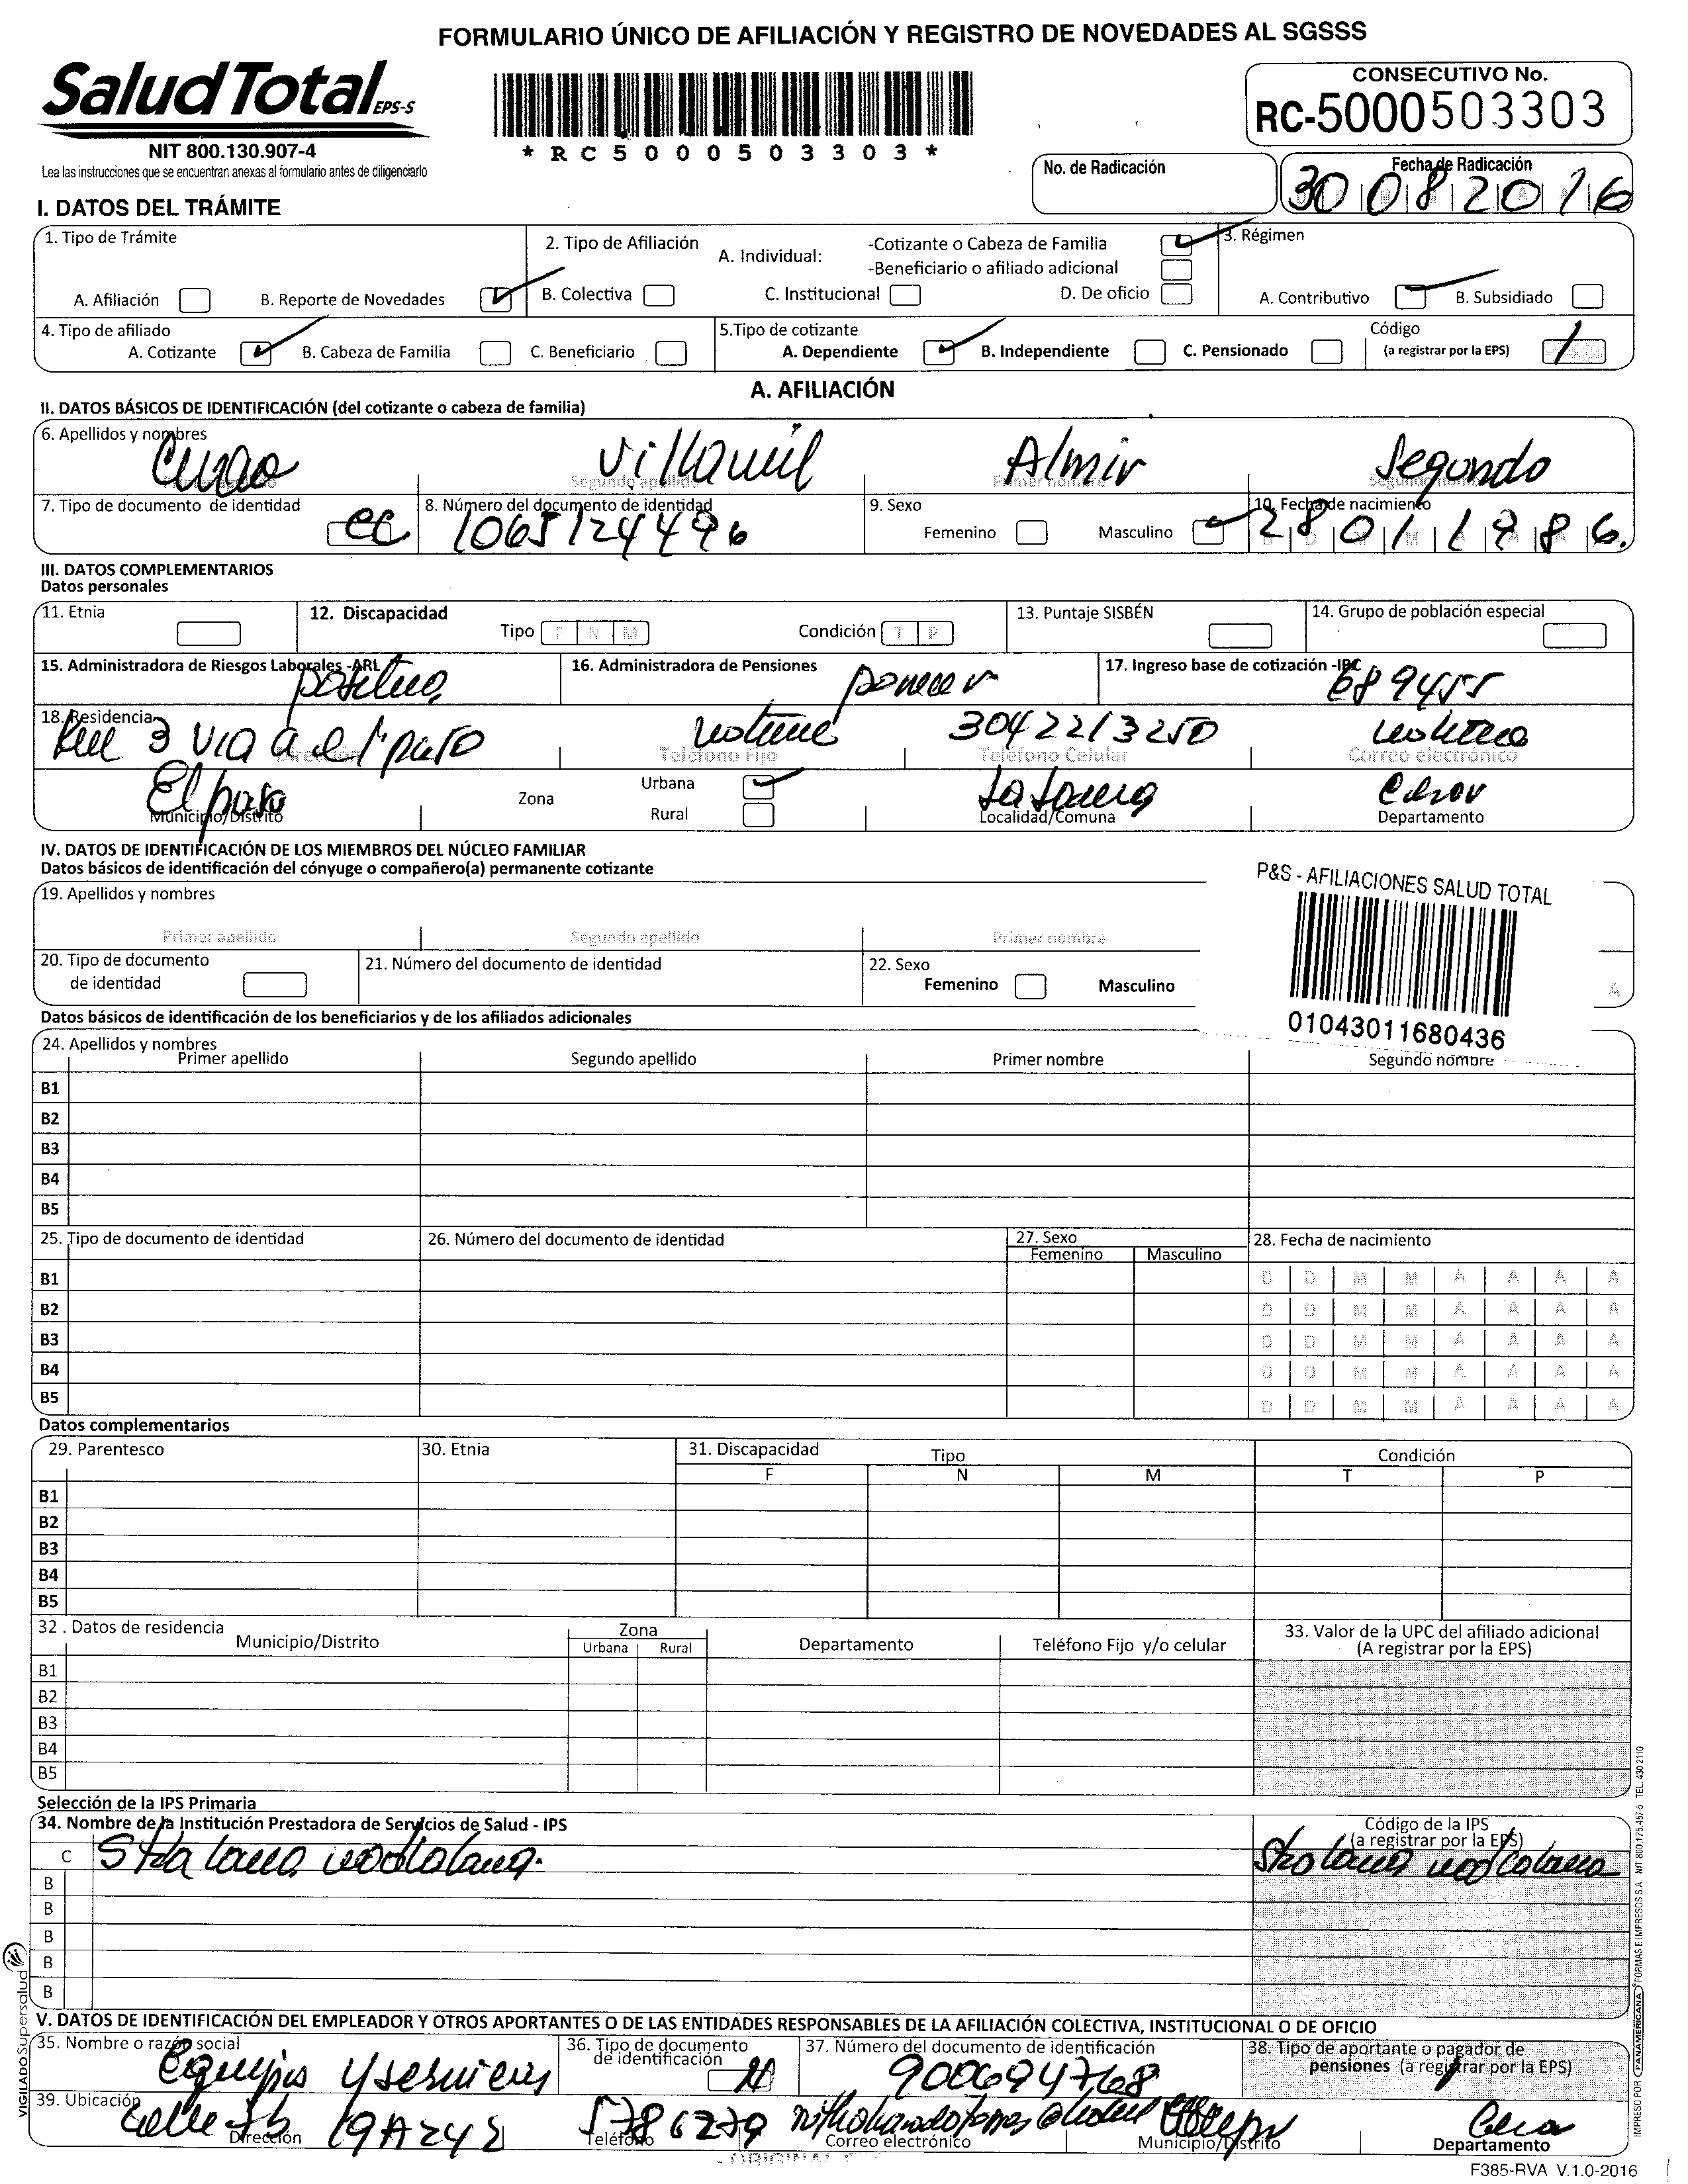 FORMULARIO ÚNICO DE AFILIACIÓN Y REGISTRO DE NOVEDADES AL SGSSS
SaludTotal EPS-S
NIT 800.130.907-4
Lea las instrucciones que se encuentran anexas al formulario antes de diligenciarlo
*RC5000503303*
CONSECUTIVO No.
RC-5000503303
No. de Radicación
Fecha de Radicación
30 08 2016
I. DATOS DEL TRÁMITE
1. Tipo de Trámite
A. Afiliación B. Reporte de Novedades
2. Tipo de Afiliación A. Individual: -Cotizante o Cabeza de Familia
-Beneficiario o afiliado adicional
B. Colectiva C. Institucional D. De oficio
3. Régimen
A. Contributivo B. Subsidiado
4. Tipo de afiliado
A. Cotizante B. Cabeza de Familia C. Beneficiario
5.Tipo de cotizante
A. Dependiente B. Independiente C. Pensionado
Código
(a registrar por la EPS) 1
A. AFILIACIÓN
II. DATOS BÁSICOS DE IDENTIFICACIÓN (del cotizante o cabeza de familia)
6. Apellidos y nombres
Villamil Almir Segundo
Primer apellido Segundo apellido Primer nombre Segundo nombre
7. Tipo de documento de identidad CC
8. Número del documento de identidad
1065124496
9. Sexo
Femenino Masculino
10. Fecha de nacimiento
28 01 1986.
III. DATOS COMPLEMENTARIOS
Datos personales
11. Etnia
12. Discapacidad
Tipo F N M Condición T P
13. Puntaje SISBÉN
14. Grupo de población especial
15. Administradora de Riesgos Laborales -ARL positiva
16. Administradora de Pensiones
17. Ingreso base de cotización -IBC 689455
18. Residencia
3 via a el paso 3042213250
Dirección Teléfono Fijo Teléfono Celular Correo electrónico
El paso
Municipio/Distrito
Zona
Urbana
Rural
La Loma
Localidad/Comuna
Cesar
Departamento
IV. DATOS DE IDENTIFICACIÓN DE LOS MIEMBROS DEL NÚCLEO FAMILIAR
Datos básicos de identificación del cónyuge o compañero(a) permanente cotizante
P&S - AFILIACIONES SALUD TOTAL
01043011680436
19. Apellidos y nombres
Primer apellido Segundo apellido Primer nombre
20. Tipo de documento
de identidad
21. Número del documento de identidad
22. Sexo
Femenino Masculino
A
Datos básicos de identificación de los beneficiarios y de los afiliados adicionales
24. Apellidos y nombres
Primer apellido Segundo apellido Primer nombre Segundo nombre
B1
B2
B3
B4
B5
25. Tipo de documento de identidad 26. Número del documento de identidad 27. Sexo 28. Fecha de nacimiento
Femenino Masculino
B1 D D M M A A A A
B2 D D M M A A A A
B3 D D M M A A A A
B4 D D M M A A A A
B5 D D M M A A A A
Datos complementarios
29. Parentesco 30. Etnia 31. Discapacidad Tipo Condición
F N M T P
B1
B2
B3
B4
B5
32 . Datos de residencia
Municipio/Distrito Zona Departamento Teléfono Fijo y/o celular
Urbana Rural
33. Valor de la UPC del afiliado adicional
(A registrar por la EPS)
B1
B2
B3
B4
B5
Selección de la IPS Primaria
34. Nombre de la Institución Prestadora de Servicios de Salud - IPS
Código de la IPS
(a registrar por la EPS)
C
B
B
B
B
B
V. DATOS DE IDENTIFICACIÓN DEL EMPLEADOR Y OTROS APORTANTES O DE LAS ENTIDADES RESPONSABLES DE LA AFILIACIÓN COLECTIVA, INSTITUCIONAL O DE OFICIO
35. Nombre o razón social
Equipos y servicios
36. Tipo de documento
de identificación N
37. Número del documento de identificación
900694768
38. Tipo de aportante o pagador de
pensiones (a registrar por la EPS)
39. Ubicación
Calle 7b 19A242 5786279
Dirección Teléfono Correo electrónico Municipio/Distrito Departamento
- ORIGINAL
F385-RVA V.1.0-2016
VIGILADO Supersalud
IMPRESO POR PANAMERICANA FORMAS E IMPRESOS S.A. NIT 800.175.457-5 TEL. 430 2110